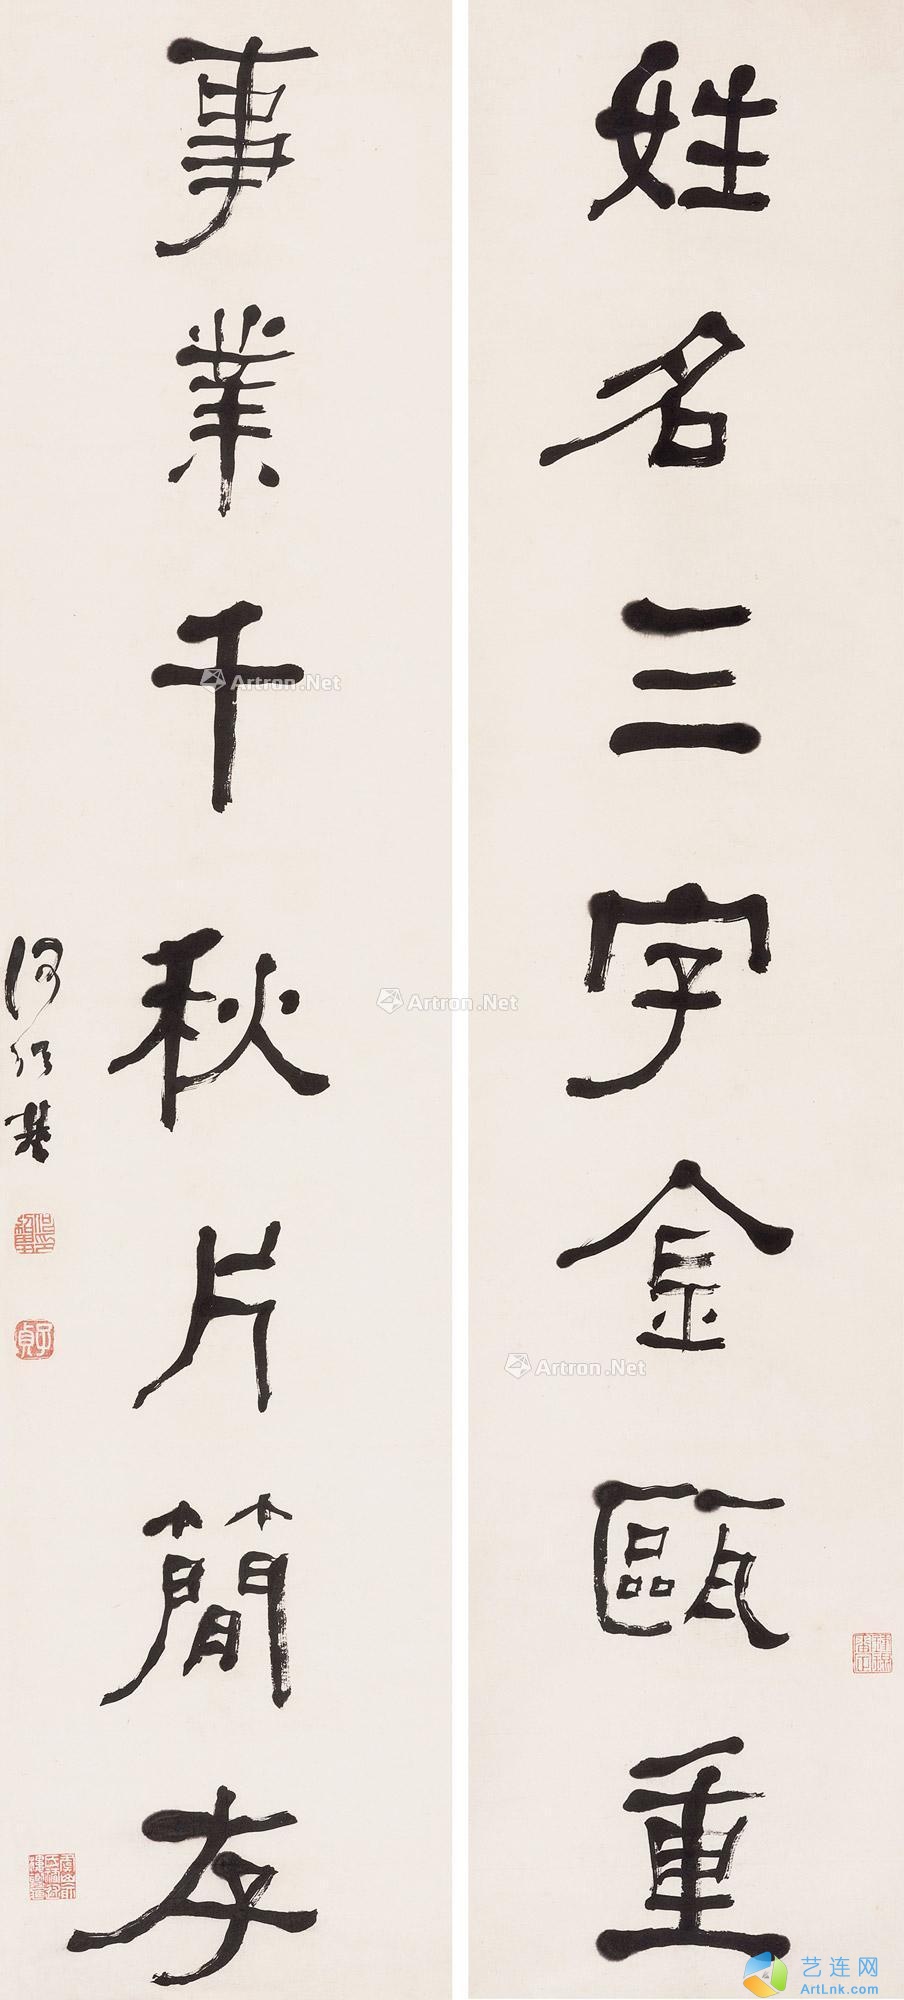 姓名三字金甌重
事業千秋片簡存
何紹基
子貞
Artron.Net
Artron.Net
Artron.Net
艺连网
ArtLnk.com